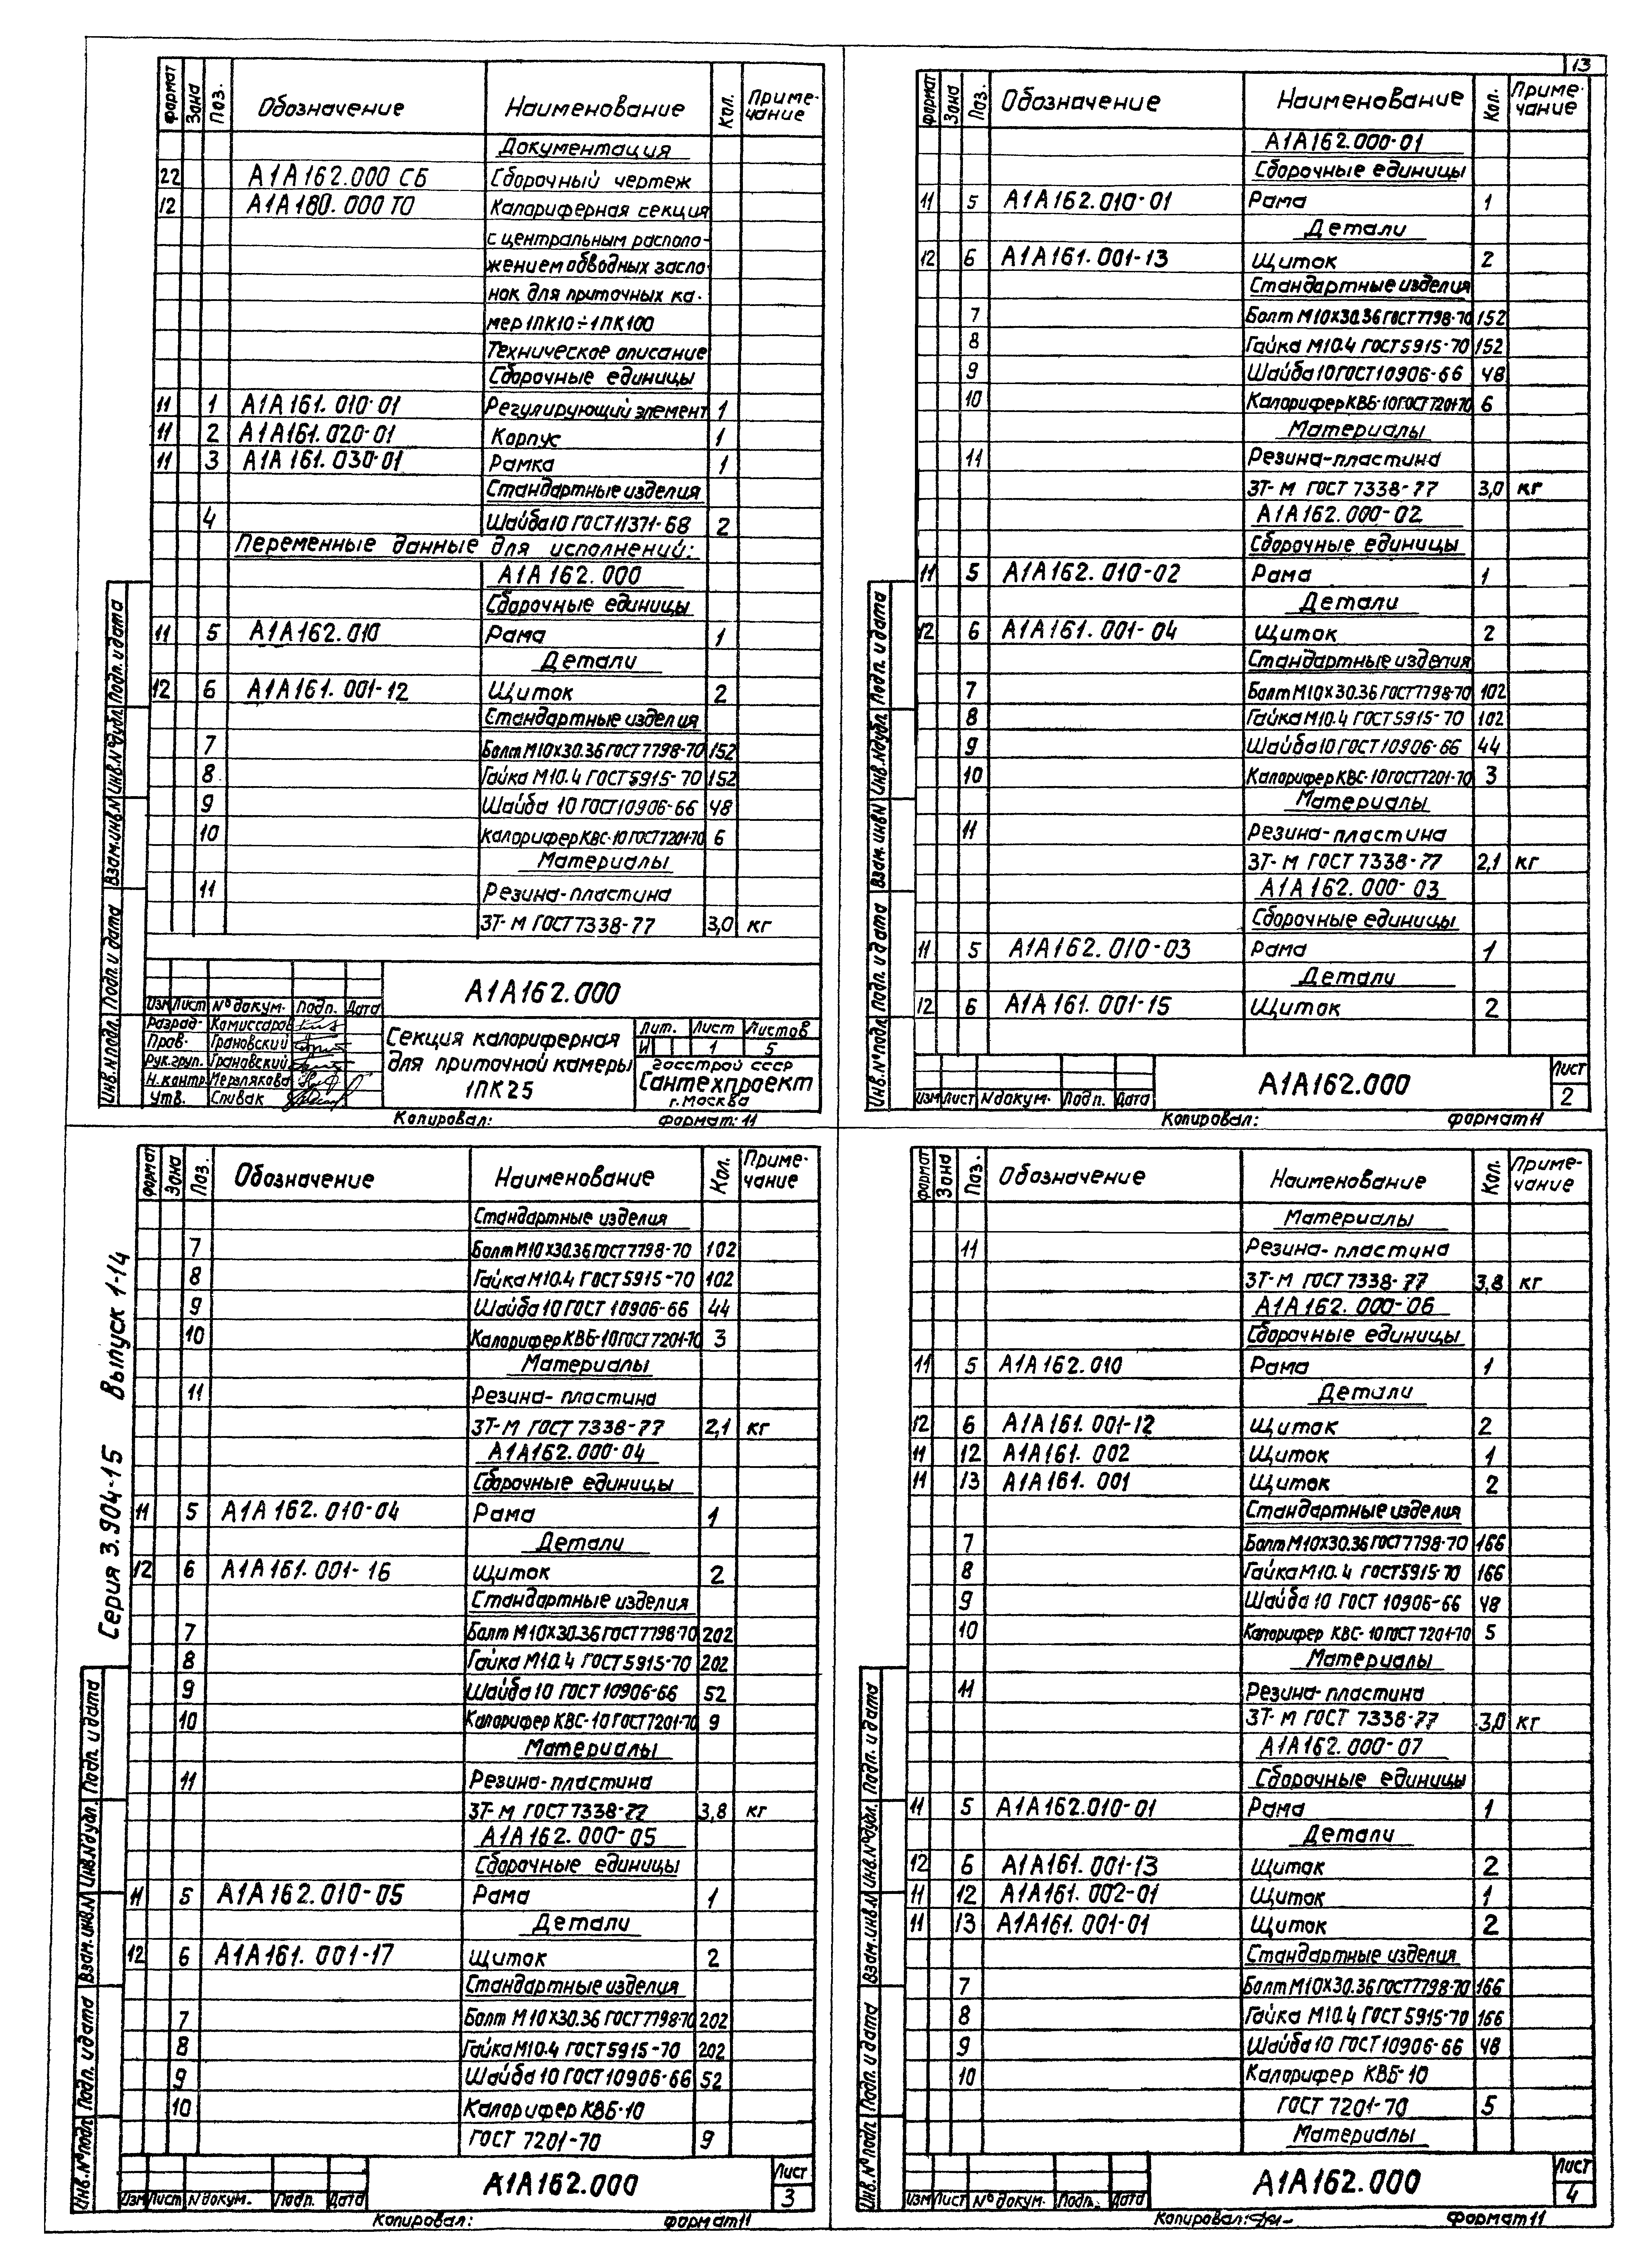 13
формат Зона Поз. Обозначение Наименование Кол. Приме-
чание
Документация
22 А1А162.000 СБ Сборочный чертеж
12 А1А180.000 ТО Калориферная секция
с центральным располо-
жением обводных засло-
нок для приточных ка-
мер 1ПК10÷1ПК100
Техническое описание
Сборочные единицы
11 1 А1А161.010-01 Регулирующий элемент 1
11 2 А1А161.020-01 Корпус 1
11 3 А1А161.030-01 Рамка 1
Стандартные изделия
4 Шайба 10 ГОСТ 11371-68 2
Переменные данные для исполнений:
А1А162.000
Сборочные единицы
11 5 А1А162.010 Рама 1
Детали
12 6 А1А161.001-12 Щиток 2
Стандартные изделия
7 Болт М10Х30.36 ГОСТ 7798-70 152
8 Гайка М10.4 ГОСТ 5915-70 152
9 Шайба 10 ГОСТ 10906-66 48
10 Калорифер КВС-10 ГОСТ 7201-70 6
Материалы
11 Резина-пластина
3Т-М ГОСТ 7338-77 3,0 кг
Инв.№подл. Подп. и дата Взам.инв.№ Инв.№дубл. Подп. и дата
Изм Лист №докум. Подп. Дата
Разраб. Комиссаров
Пров. Грановский
Рук.груп. Грановский
Н.контр. Мерзлякова
Утв. Спивак
А1А162.000
Секция калориферная
для приточной камеры
1ПК25
Лит. Лист Листов
И 1 5
Госстрой СССР
Сантехпроект
г.Москва
Копировал: Формат: 11
формат Зона Поз. Обозначение Наименование Кол. Приме-
чание
А1А162.000-01
Сборочные единицы
11 5 А1А162.010-01 Рама 1
Детали
12 6 А1А161.001-13 Щиток 2
Стандартные изделия
7 Болт М10Х30.36 ГОСТ 7798-70 152
8 Гайка М10.4 ГОСТ 5915-70 152
9 Шайба 10 ГОСТ 10906-66 48
10 Калорифер КВБ-10 ГОСТ 7201-70 6
Материалы
11 Резина-пластина
3Т-М ГОСТ 7338-77 3,0 кг
А1А162.000-02
Сборочные единицы
11 5 А1А162.010-02 Рама 1
Детали
12 6 А1А161.001-04 Щиток 2
Стандартные изделия
7 Болт М10Х30.36 ГОСТ 7798-70 102
8 Гайка М10.4 ГОСТ 5915-70 102
9 Шайба 10 ГОСТ 10906-66 44
10 Калорифер КВС-10 ГОСТ 7201-70 3
Материалы
11 Резина-пластина
3Т-М ГОСТ 7338-77 2,1 кг
А1А162.000-03
Сборочные единицы
11 5 А1А162.010-03 Рама 1
Детали
12 6 А1А161.001-15 Щиток 2
Инв.№подл. Подп. и дата Взам.инв№ Инв.№дубл. Подп. и дата
Изм Лист №докум. Подп. Дата
А1А162.000
Лист
2
Копировал: формат 11
Серия 3.904-15 Выпуск 1-14
формат Зона Поз. Обозначение Наименование Кол. Приме-
чание
Стандартные изделия
7 Болт М10Х30.36 ГОСТ 7798-70 102
8 Гайка М10.4 ГОСТ 5915-70 102
9 Шайба 10 ГОСТ 10906-66 44
10 Калорифер КВБ-10 ГОСТ 7201-70 3
Материалы
11 Резина-пластина
3Т-М ГОСТ 7338-77 2,1 кг
А1А162.000-04
Сборочные единицы
11 5 А1А162.010-04 Рама 1
Детали
12 6 А1А161.001-16 Щиток 2
Стандартные изделия
7 Болт М10Х30.36 ГОСТ 7798-70 202
8 Гайка М10.4 ГОСТ 5915-70 202
9 Шайба 10 ГОСТ 10906-66 52
10 Калорифер КВС-10 ГОСТ 7201-70 9
Материалы
11 Резина-пластина
3Т-М ГОСТ 7338-77 3,8 кг
А1А162.000-05
Сборочные единицы
11 5 А1А162.010-05 Рама 1
Детали
12 6 А1А161.001-17 Щиток 2
Стандартные изделия
7 Болт М10Х30.36 ГОСТ 7798-70 202
8 Гайка М10.4 ГОСТ 5915-70 202
9 Шайба 10 ГОСТ 10906-66 52
10 Калорифер КВБ-10
ГОСТ 7201-70 9
Инв.№подл. Подп. и дата Взам.инв.№ Инв.№дубл. Подп. и дата
Изм Лист №докум. Подп. Дата
А1А162.000
Лист
3
Копировал: формат 11
формат Зона Поз. Обозначение Наименование Кол. Приме-
чание
Материалы
11 Резина-пластина
3Т-М ГОСТ 7338-77 3,8 кг
А1А162.000-06
Сборочные единицы
11 5 А1А162.010 Рама 1
Детали
12 6 А1А161.001-12 Щиток 2
11 12 А1А161.002 Щиток 1
11 13 А1А161.001 Щиток 2
Стандартные изделия
7 Болт М10Х30.36 ГОСТ 7798-70 166
8 Гайка М10.4 ГОСТ 5915-70 166
9 Шайба 10 ГОСТ 10906-66 48
10 Калорифер КВС-10 ГОСТ 7201-70 5
Материалы
11 Резина-пластина
3Т-М ГОСТ 7338-77 3,0 кг
А1А162.000-07
Сборочные единицы
11 5 А1А162.010-01 Рама 1
Детали
12 6 А1А161.001-13 Щиток 2
11 12 А1А161.002-01 Щиток 1
11 13 А1А161.001-01 Щиток 2
Стандартные изделия
7 Болт М10Х30.36 ГОСТ 7798-70 166
8 Гайка М10.4 ГОСТ 5915-70 166
9 Шайба 10 ГОСТ 10906-66 48
10 Калорифер КВБ-10
ГОСТ 7201-70 5
Материалы
Инв.№подл. Подп. и дата Взам.инв.№ Инв.№дубл. Подп. и дата
Изм Лист №докум. Подп. Дата
А1А162.000
Лист
4
Копировал: Формат 11